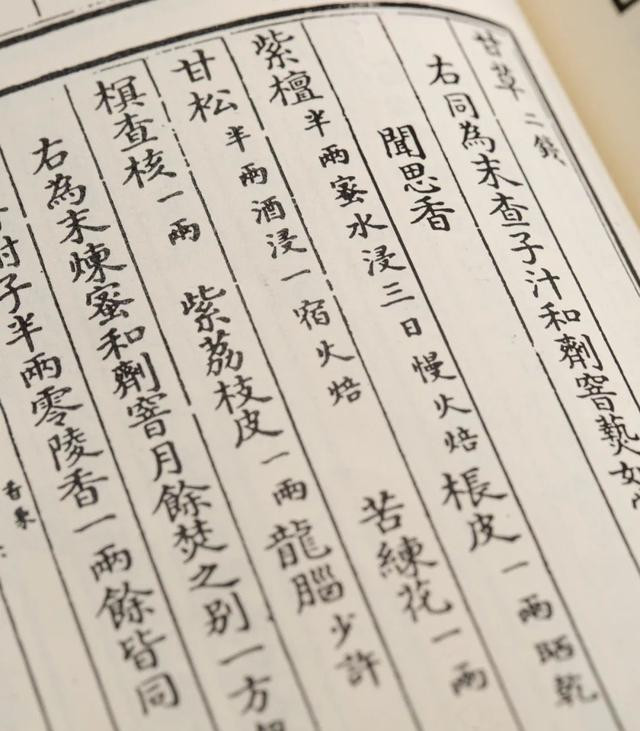 甘草二錢
右同為末查子汁和劑窨爇如
聞思香
紫檀半兩蜜水浸三日慢火焙 棖皮一兩晒乾
甘松半兩酒浸一宿火焙 苦練花一兩
榠查核一兩 紫荔枝皮一兩 龍腦少許
右為末煉蜜和劑窨月餘焚之别一方
附子半兩零陵香一兩餘皆同
香乘